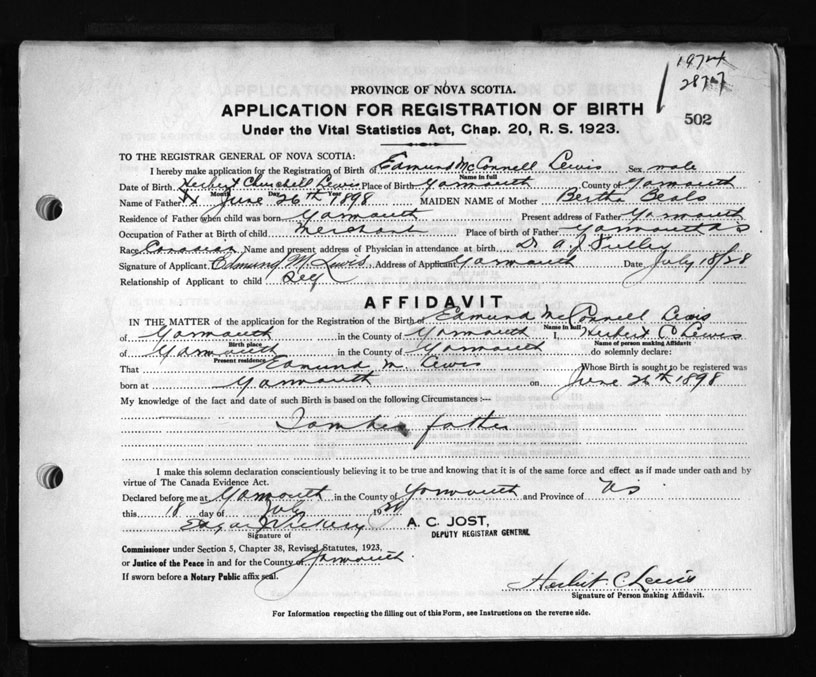 1974
287
PROVINCE OF NOVA SCOTIA.
APPLICATION FOR REGISTRATION OF BIRTH
502
Under the Vital Statistics Act, Chap. 20, R. S. 1923.
TO THE REGISTRAR GENERAL OF NOVA SCOTIA:
I hereby make application for the Registration of Birth of Edmund McConnell Lewis Sex male
Name in full
Date of Birth Herbert Churchill Lewis Place of Birth Yarmouth County of Yarmouth
Month Day Year
Name of Father June 26th 1898 MAIDEN NAME of Mother Bertha Beals
Residence of Father when child was born Yarmouth Present address of Father Yarmouth
Occupation of Father at Birth of child Merchant Place of birth of Father Yarmouth NS
Race Canadian Name and present address of Physician in attendance at birth Dr. A. J.
Signature of Applicant Edmund M. Lewis Address of Applicant Yarmouth Date July 18/28
Relationship of Applicant to child Self
AFFIDAVIT
IN THE MATTER of the application for the Registration of the Birth of Edmund McConnell Lewis
Name in full
of Yarmouth in the County of Yarmouth I, Herbert C Lewis
Birth place Name of person making Affidavit
of Yarmouth in the County of Yarmouth do solemnly declare:
Present residence
That Edmund M. Lewis Whose Birth is sought to be registered was
born at Yarmouth on June 26th 1898
My knowledge of the fact and date of such Birth is based on the following Circumstances :—
I am his father
I make this solemn declaration conscientiously believing it to be true and knowing that it is of the same force and effect as if made under oath and by
virtue of The Canada Evidence Act.
Declared before me at Yarmouth in the County of Yarmouth and Province of NS
this 18 day of July 1928
Signature of
A. C. JOST,
DEPUTY REGISTRAR GENERAL
Commissioner under Section 5, Chapter 38, Revised Statutes, 1923,
or Justice of the Peace in and for the County of Yarmouth
If sworn before a Notary Public affix seal.
Herbert C Lewis
Signature of Person making Affidavit.
For Information respecting the filling out of this Form, see Instructions on the reverse side.